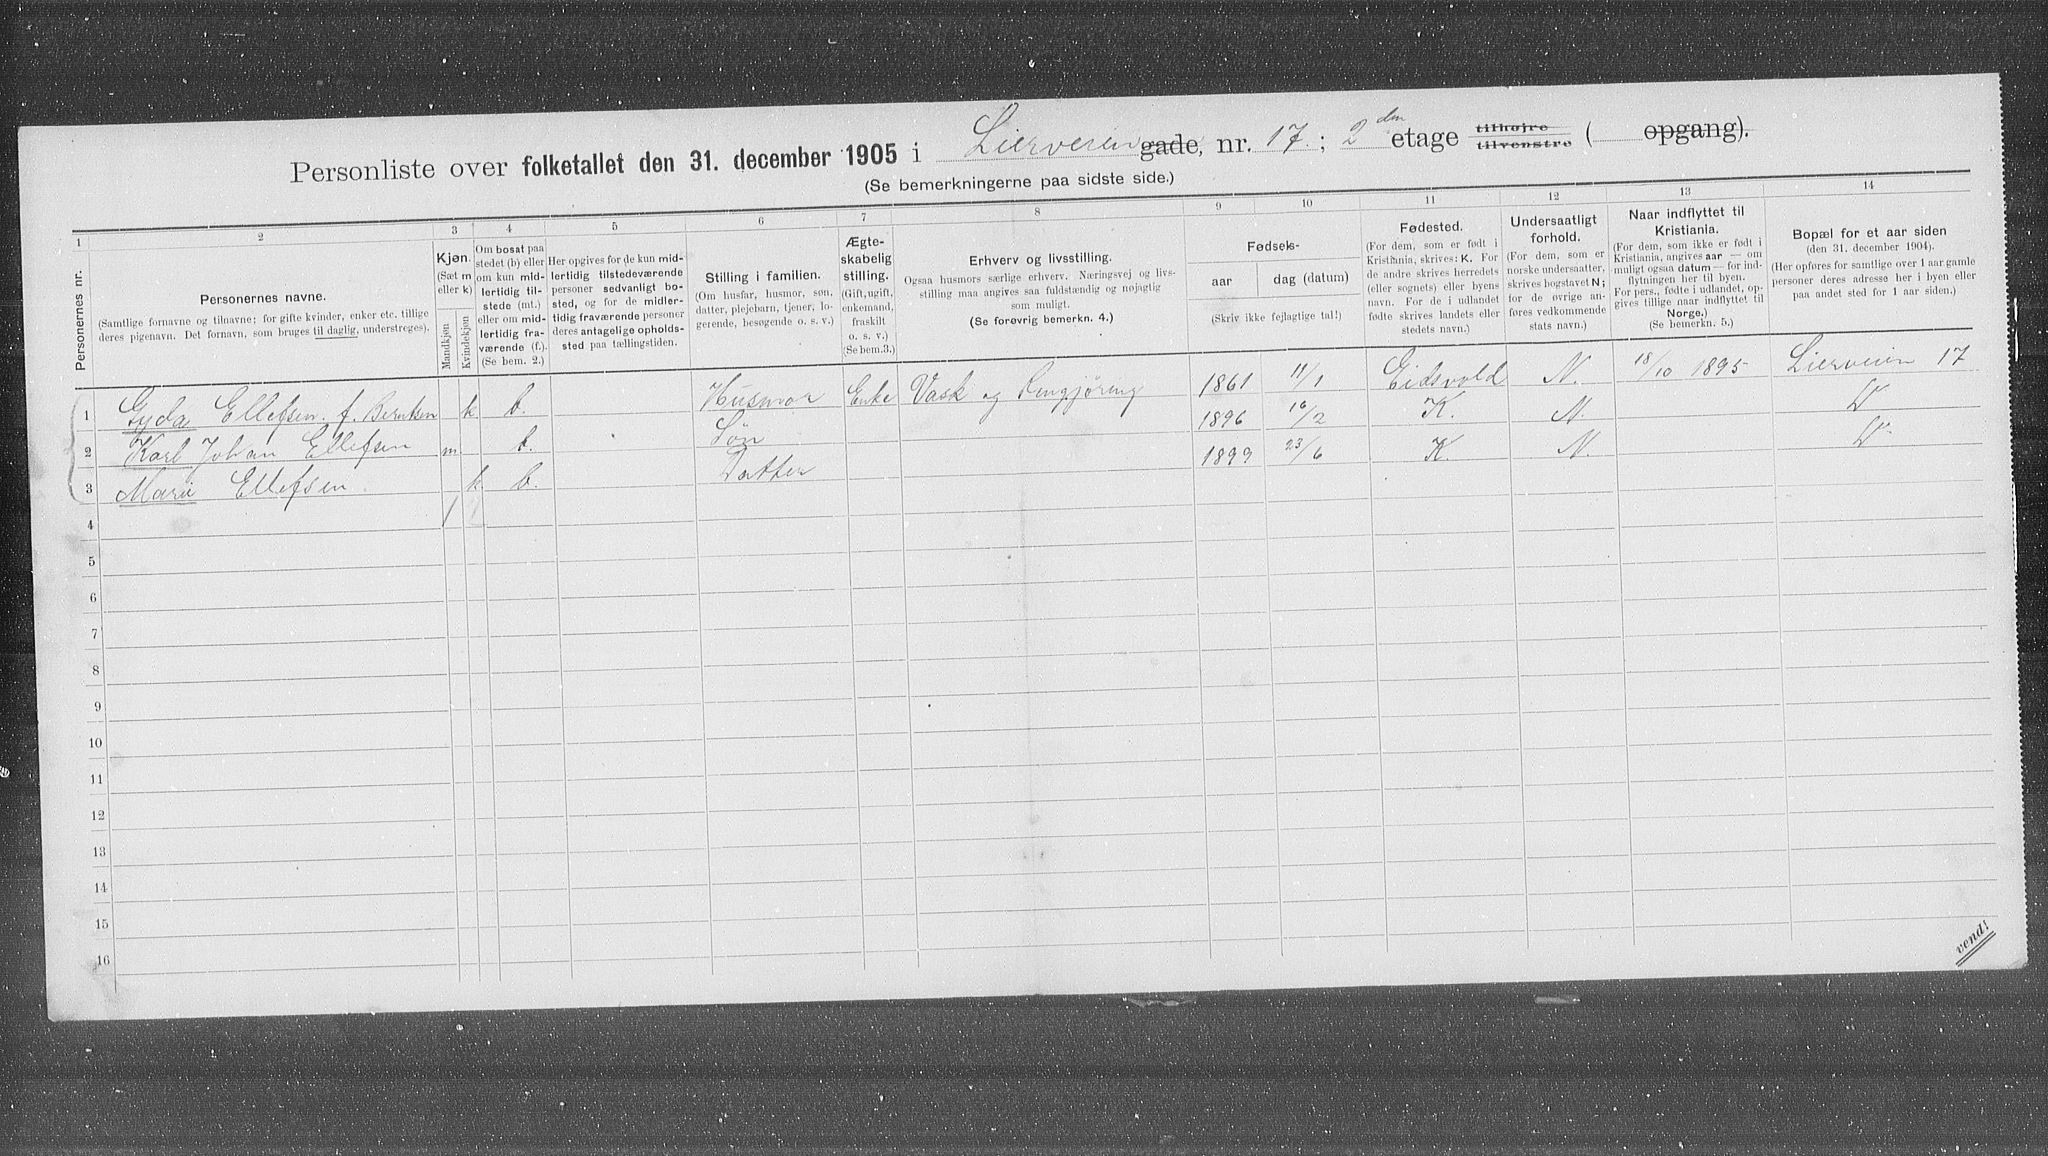 Personliste over folketallet den 31. december 1905 i Lierveien gade, nr. 17.; 2 den etage tilhøjre tilvenstre ( opgang).
(Se bemerkningerne paa sidste side.)
1 2 3 4 5 6 7 8 9 10 11 12 13 14
Personernes nr.
Personernes navne.
(Samtlige fornavne og tilnavne; for gifte kvinder, enker etc. tillige
deres pigenavn. Det fornavn, som bruges til daglig, understreges).
Kjøn.
(Sæt m
eller k)
Mandkjøn
Kvindekjøn
Om bosat paa
stedet (b) eller
om kun mid-
lertidig til-
stede (mt.)
eller om mid-
lertidig fra-
værende (f.).
(Se bem. 2.)
Her opgives for de kun mid-
lertidig tilstedeværende
personer sedvanligt bo-
sted, og for de midler-
tidig fraværende personer
deres antagelige opholds-
sted paa tællingstiden.
Stilling i familien.
(Om husfar, husmor, søn,
datter, plejebarn, tjener, lo-
gerende, besøgende o. s. v.)
Ægte-
skabelig
stilling.
(Gift, ugift,
enkemand,
fraskilt
o. s. v.)
(Se bem.3.)
Erhverv og livsstilling.
Ogsaa husmors særlige erhverv. Næringsvej og livs-
stilling maa angives saa fuldstændig og nøjagtig
som muligt.
(Se forøvrig bemerkn. 4.)
Fødsels-
aar
dag (datum)
(Skriv ikke fejlagtige tal!)
Fødested.
(For dem, som er født i
Kristiania, skrives: K. For
de andre skrives herredets
(eller sognets) eller byens
navn. For de i udlandet
fødte skrives landets eller
stedets navn.)
Undersaatligt
forhold.
(For dem, som er
norske undersaatter,
skrives bogstavet N;
for de øvrige an-
føres vedkommende
stats navn.)
Naar indflyttet til
Kristiania.
(For dem, som ikke er født i
Kristiania, angives aar — om
muligt ogsaa datum — for ind-
flytningen her til byen.
For pers., fødte i udlandet, op-
gives tillige naar indflyttet til
Norge.)
(Se bemerkn. 5.)
Bopæl for et aar siden
(den 31. december 1904).
(Her opføres for samtlige over 1 aar gamle
personer deres adresse her i byen eller
paa andet sted for 1 aar siden.)
1 Gyda Ellefsen f. Berntsen k b. Husmor Enke Vask og Rengjøring 1861 11/1 Eidsvold N. 18/10 1895 Lierveien 17
2 Karl Johan Ellefsen m. b. Søn 1896 16/2 K. N.
3 Marie Ellefsen k. b. Datter 1899 23/6 K. N.
4 1
5
6
7
8
9
10
11
12
13
14
15
16
vend!